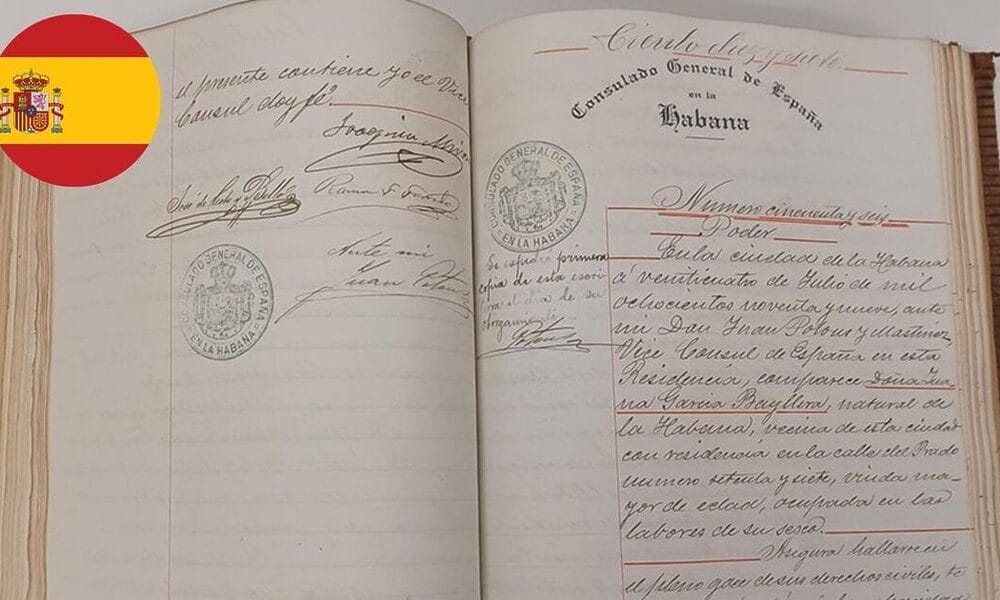 el presente contiene yo el Vice
Consul doy fé.
Joaquin
José de
Ramon F.
Ante mi
Juan Potous
CONSULADO GENERAL DE ESPAÑA
EN LA HABANA
Ciento diez y siete
Consulado General de España
en la
Habana
CONSULADO GENERAL DE ESPAÑA
EN LA HABANA
Se espidió primera
copia de esta escri
tura el dia de su
otorgamiento
Potous
Número cincuenta y seis
Poder
En la ciudad de la Habana
á veinticuatro de Julio de mil
ochocientos noventa y nueve, ante
mi Don Juan Potous y Martinez
Vice Consul de España en esta
Residencia, comparece Doña Jua-
na Garcia Bayllera, natural de
la Habana, vecina de esta ciudad
con residencia en la calle del Prado
numero setenta y siete, viuda ma-
yor de edad, ocupada en las
labores de su secso.
Asegura hallarse en
el pleno goce de sus derechos civiles, te